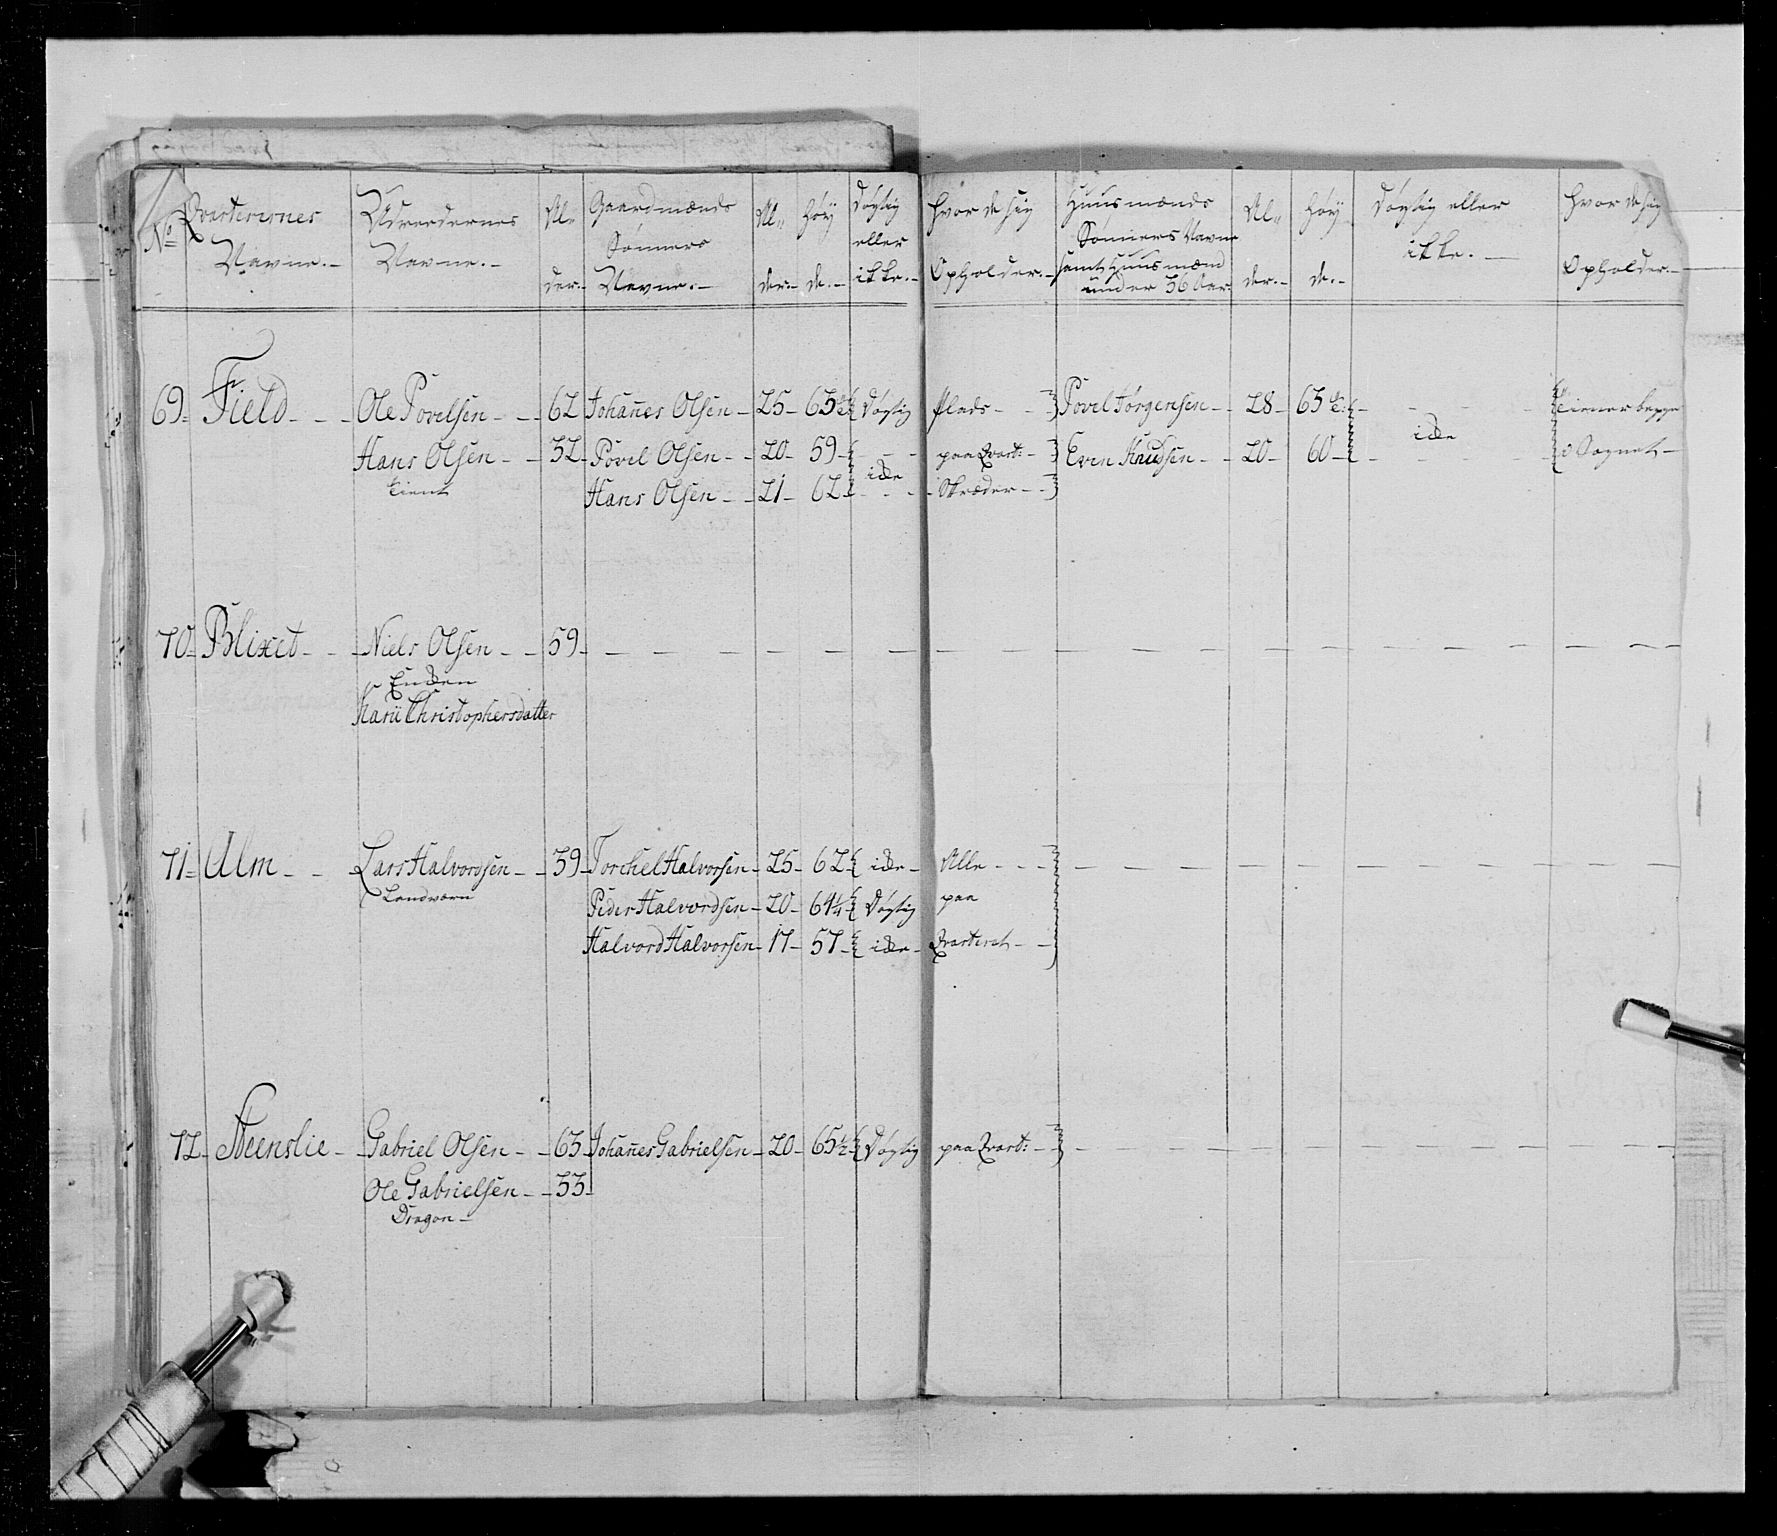 No
Qvarterernes
Navne.
Udreedernes
Navne.
Al=
der.
Gaardmænds
Sønners
Navne.
Al=
der.
Høy
de.
Døgtig
eller
ikke.
Hvor de sig
Opholder.
Huusmænds
Sønners Navne
samt Huusmænd
under 36 Aar.
Al=
der.
Høy
de.
Døgtig eller
ikke.
Hvor de sig
Opholder.
69. Field Ole Povelsen 62 Johanes Olsen 25 63 Døgtig Plads Povel Jørgensen 28 63 tiener begge
Hans Olsen 32 Povel Olsen 20 59 ikke paa Qvart: Even Knudsen 20 60 ikke i Sognet
tient Hans Olsen 21 62 Skræder
70 Blixet Niels Olsen 59
Enken
Kari Christophersdatter
71 Alm Lars Halvordsen 39 Torchel Halvorsen 25 62 ikke Alle
Landværn Peder Halvordsen 20 64 1/4 Døgtig paa
Halvord Halvorsen 17 57 ikke Qvarteret
72 Steenslie Gabriel Olsen 63 Johanes Gabrielsen 20 65 1/2 Døgtig paa Qvart:
Ole Gabrielsen 33
Dragon